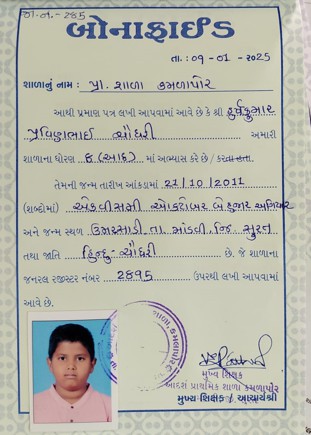 જા.ન.- 285
બોનાફાઈડ
તા.: 09 - 01 - 2025
શાળાનું નામ : પ્રા. શાળા કમળાપોર
આથી પ્રમાણ પત્ર લખી આપવામાં આવે છે કે શ્રી હર્ષકુમાર
પ્રવિણભાઈ ચૌધરી અમારી
શાળાના ધોરણ ૮ (આઠ) માં અભ્યાસ કરે છે / કરતા હતા.
તેમની જન્મ તારીખ આંકડામાં 21/10/2011
(શબ્દોમાં) એકવીસમી ઓક્ટોબર બે હજાર અગિયાર
અને જન્મ સ્થળ ઉમરસાડી તા. માંડવી જિ. સુરત
તથા જાતિ હિન્દુ - ચૌધરી છે. જે શાળાના
જનરલ રજીસ્ટર નંબર 2895 ઉપરથી લખી આપવામાં
આવે છે.
શાળા, કમળાપોર
મુખ્ય શિક્ષક
આદર્શ પ્રાથમિક શાળા કમળાપોર
મુખ્ય શિક્ષક / આચાર્યશ્રી